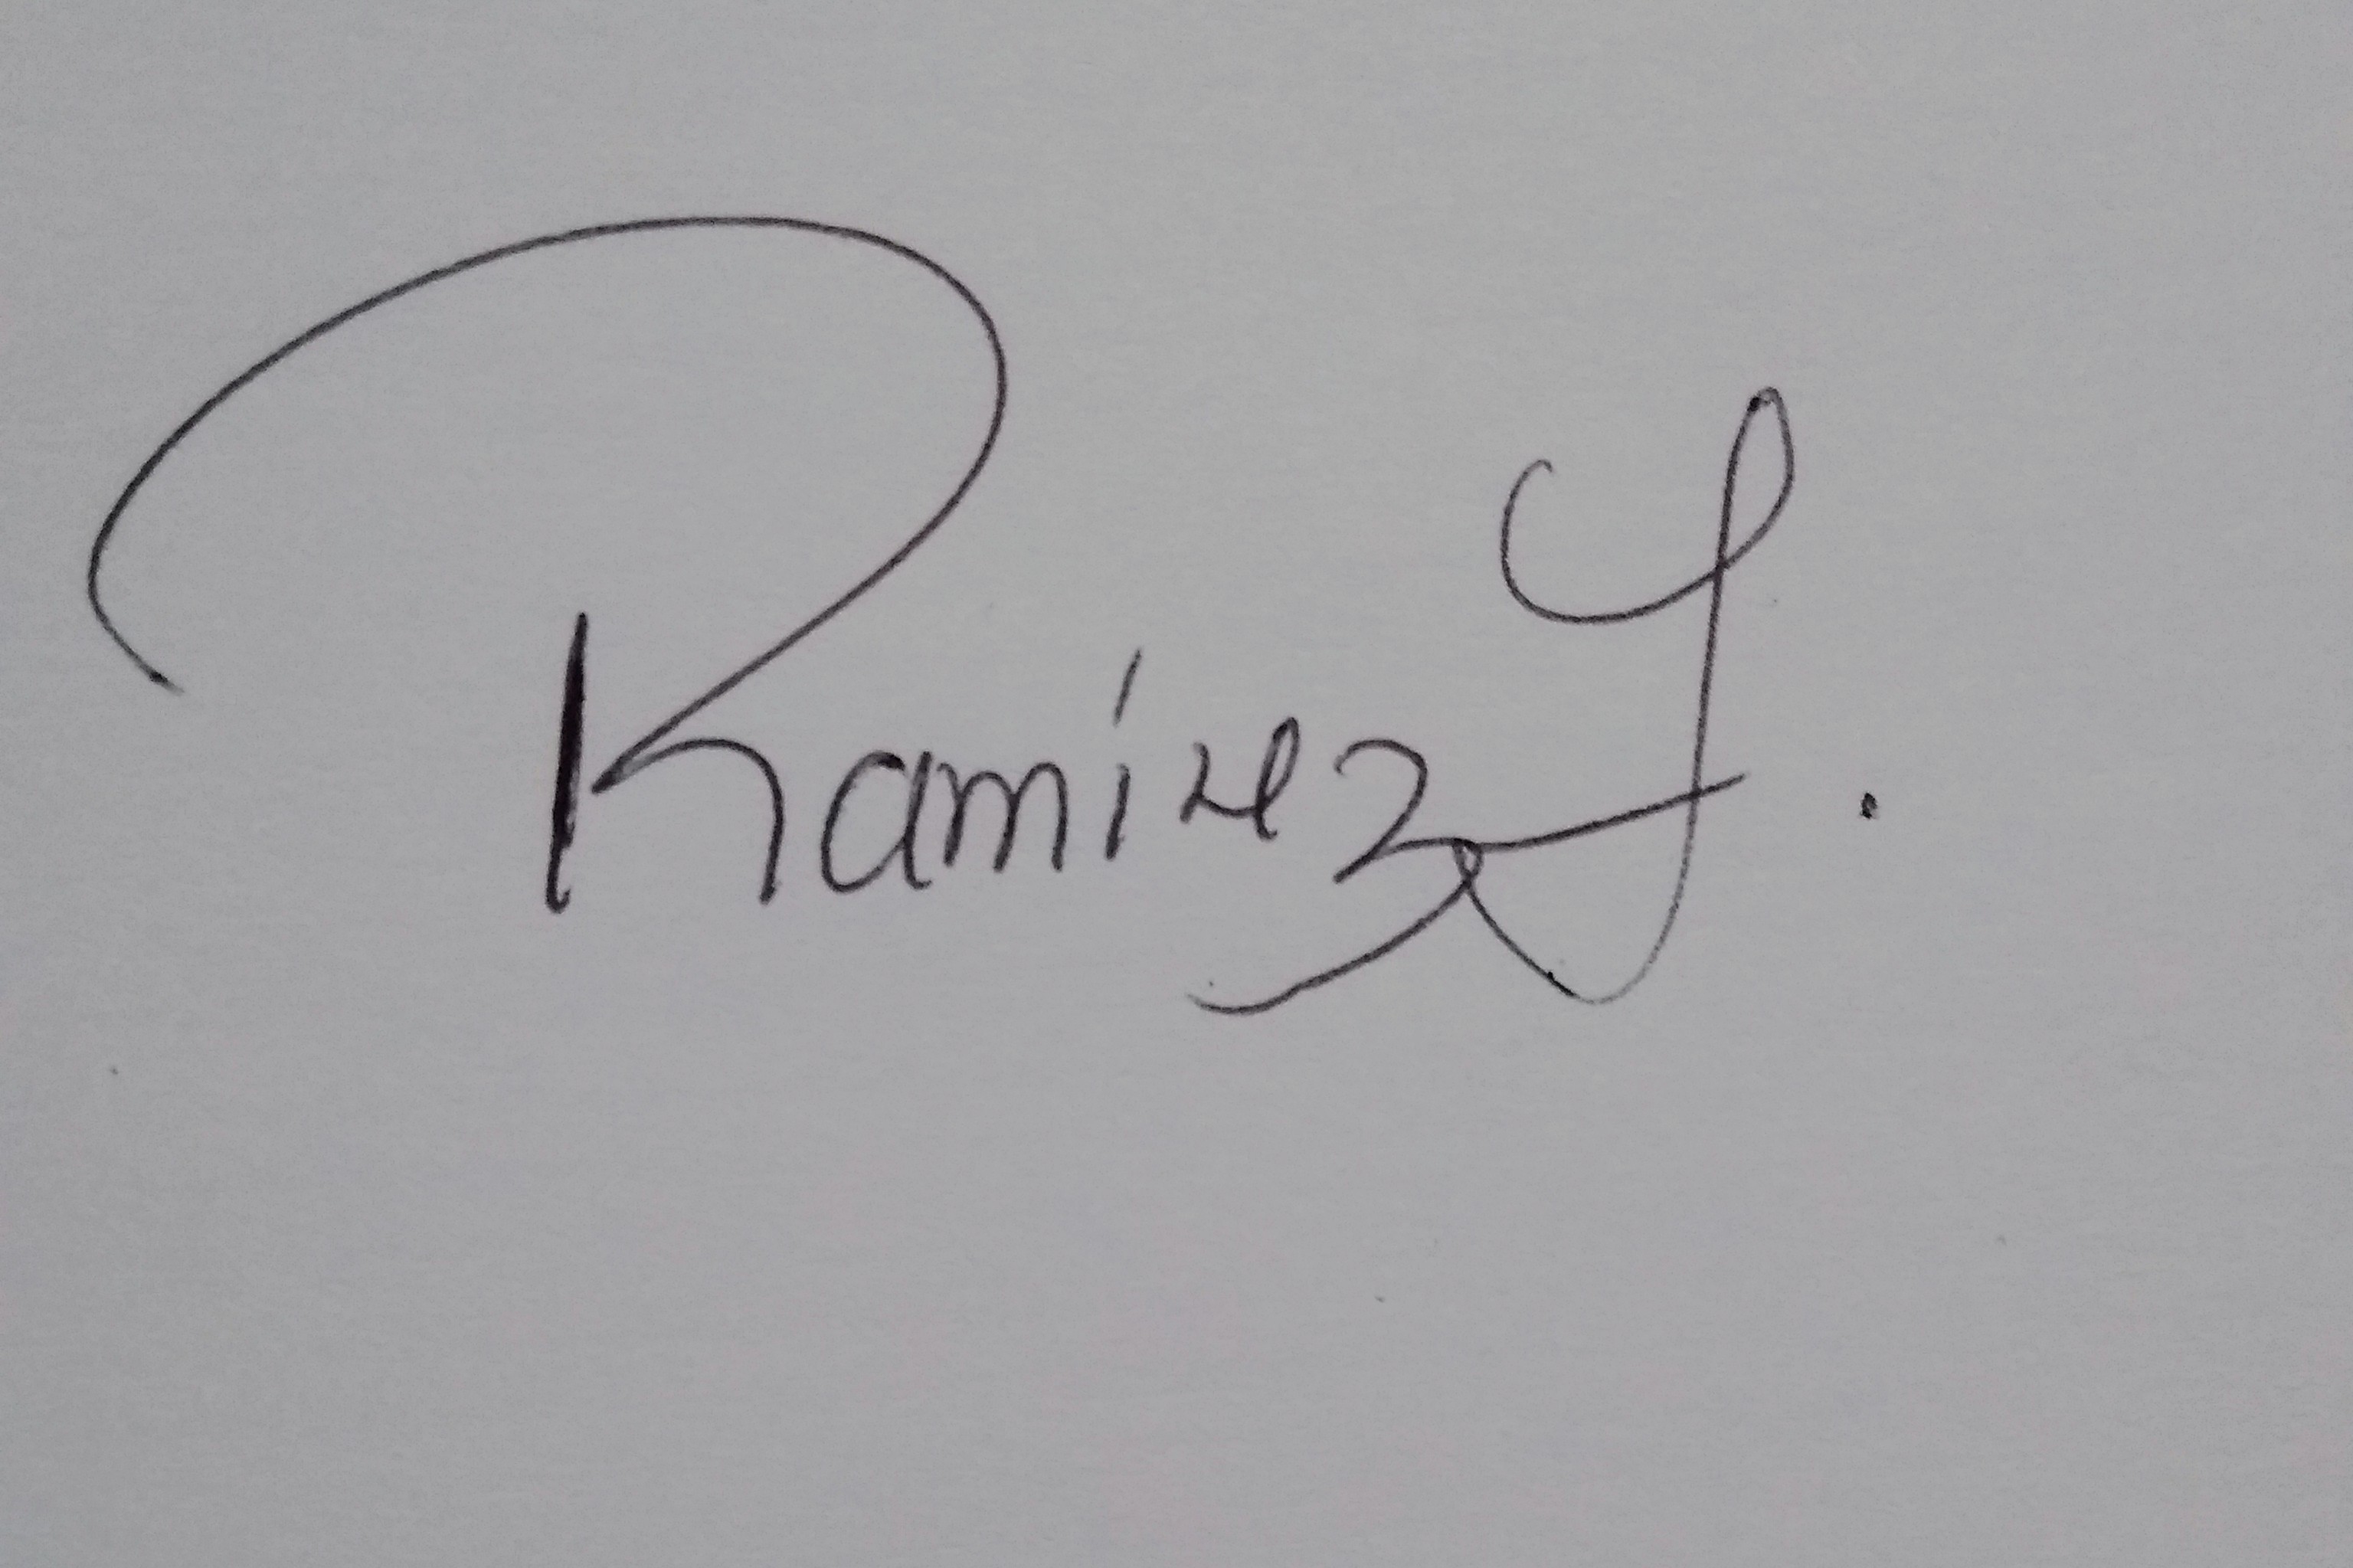 Ramirez S.